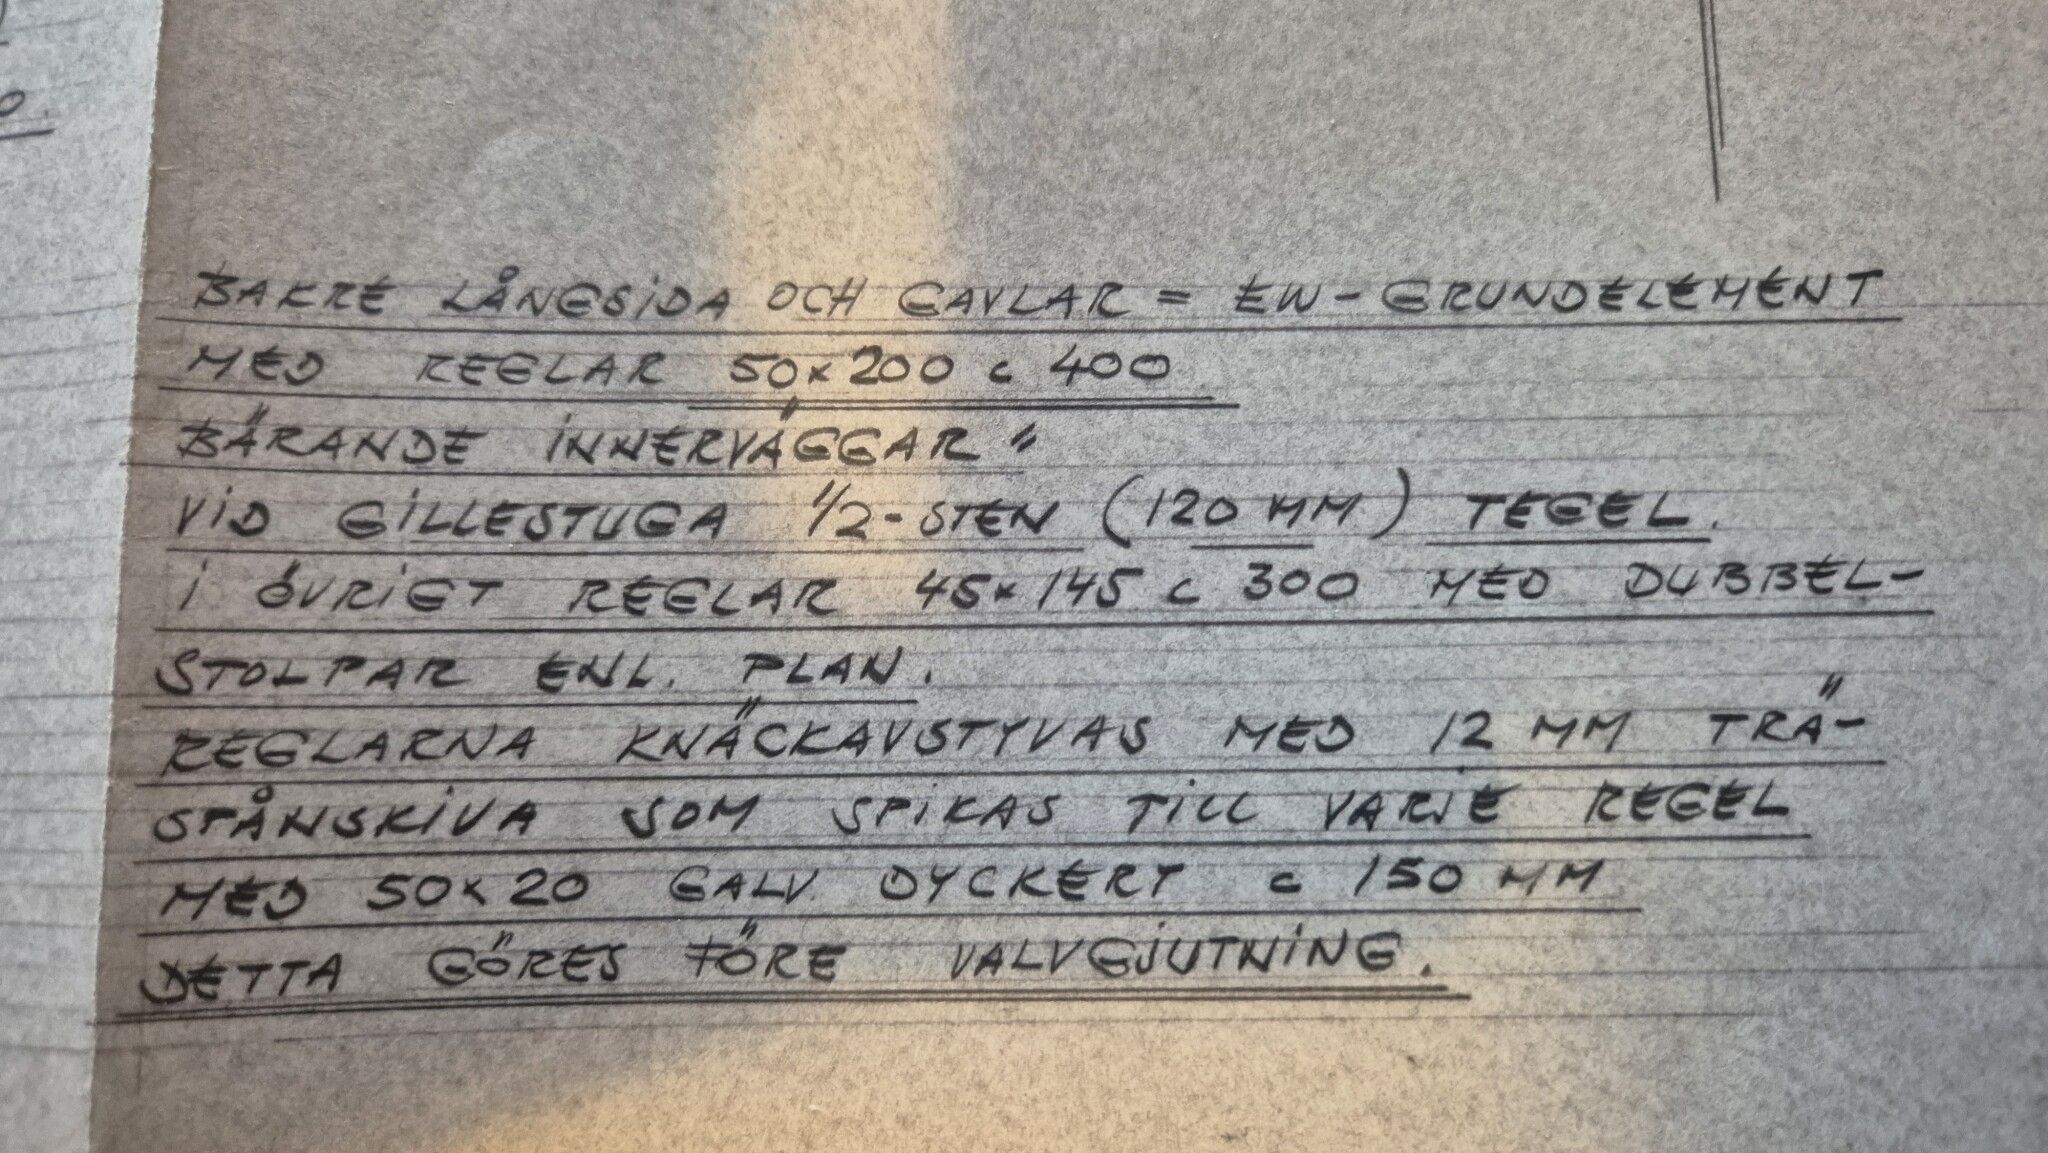 BAKRE LÅNGSIDA OCH GAVLAR = EW-GRUNDELEMENT
MED REGLAR 50x200 c 400
BÄRANDE INNERVÄGGAR "
VID GILLESTUGA 1/2-STEN (120 MM) TEGEL.
I ÖVRIGT REGLAR 45x145 c 300 MED DUBBEL-
STOLPAR ENL. PLAN.
REGLARNA KNÄCKAVSTYVAS MED 12 MM TRÄ-
SPÅNSKIVA SOM SPIKAS TILL VARJE REGEL
MED 50x20 GALV. DYCKERT c 150 MM
DETTA GÖRES FÖRE VALVGJUTNING.